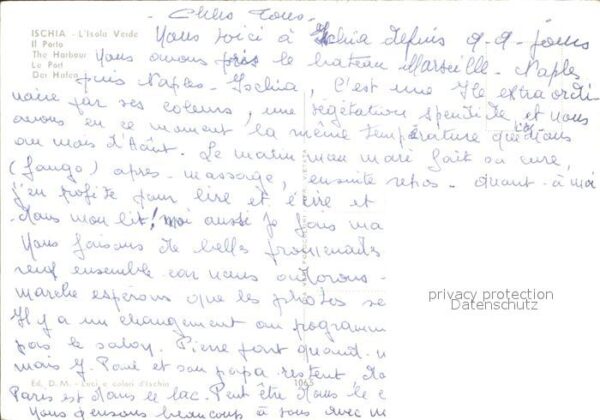 Chers Tous -
ISCHIA - L'Isola Verde
Il Porto
The Harbour
Le Port
Der Hafen
Vous voici à Ischia depuis q.q. jours
Nous avons pris le bateau Marseille - Naples
puis Naples - Ischia, C'est une Ile extraordi
naire par ses coleurs, une végétation spendide et nous
avons en ce moment la même température qu'dans
au mois d'Août. Le matin mon mari fait sa cure,
(fango) apres - massage, ensuite repos - quant - à moi
j'en profite pour lire et écrire et
dans mon lit! moi aussi je fais ma
Nous faisons de belles promenades
ensemble car nous adorons
marche espérons que les photos se
Il y a un changement au programm
pas le saloy. Pierre font quand. n
mais J. Paul et son papa restent da
Ed. D. M. - Luci e colori d'Ischia 1065
Paris est dans le lac. Peut être dans le c
Nous pensons beaucoup à tous avec
privacy protection
Datenschutz